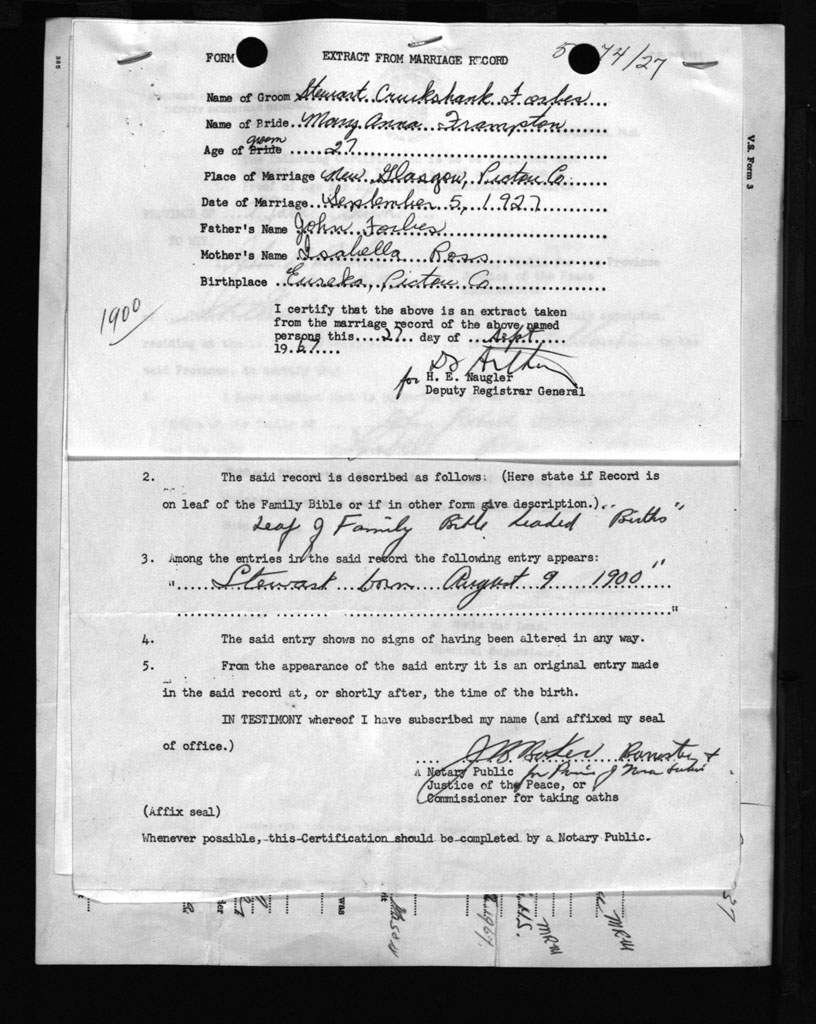 FORM EXTRACT FROM MARRIAGE RECORD 5 74/27
Name of Groom Stewart Cruckshank Forbes
Name of Bride Mary Anna Frampton
groom
Age of Bride 27
Place of Marriage New Glasgow, Pictou Co.
Date of Marriage September 5, 1927
Father's Name John Forbes
Mother's Name Isabella Ross
Birthplace Eureka, Pictou Co.
1900
I certify that the above is an extract taken
from the marriage record of the above named
persons this....27.. day of ..Sept.
19.67....
for H. E. Naugler
Deputy Registrar General
V.S. Form 3
2. The said record is described as follows: (Here state if Record is
on leaf of the Family Bible or if in other form give description.)..
Leaf of Family Bible headed Births"
3. Among the entries in the said record the following entry appears:
"..... Stewart born August 9 1900 "
"
4. The said entry shows no signs of having been altered in any way.
5. From the appearance of the said entry it is an original entry made
in the said record at, or shortly after, the time of the birth.
IN TESTIMONY whereof I have subscribed my name (and affixed my seal
of office.)
.... J B Baker Barrister &
A Notary Public for Prov. of Nova Scotia
Justice of the Peace, or
Commissioner for taking oaths
(Affix seal)
Whenever possible, this Certification should be completed by a Notary Public.
37
was
1967
MRM
MRM